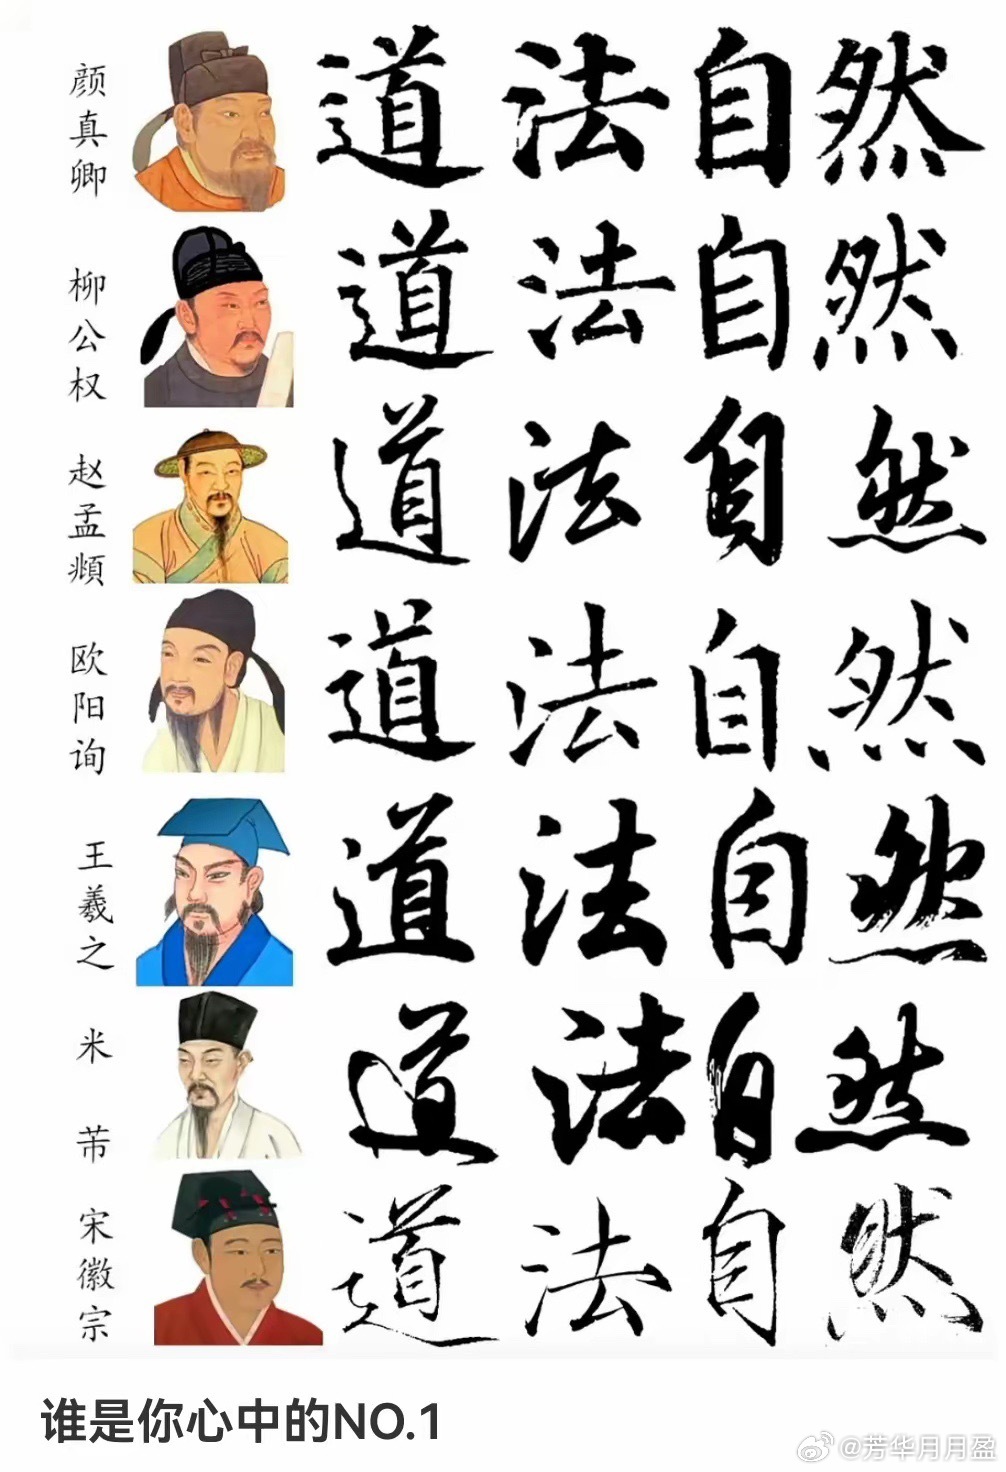 颜真卿 道法自然
柳公权 道法自然
赵孟頫 道法自然
欧阳询 道法自然
王羲之 道法自然
米芾 道法自然
宋徽宗 道法自然
谁是你心中的NO.1
@芳华月月盈